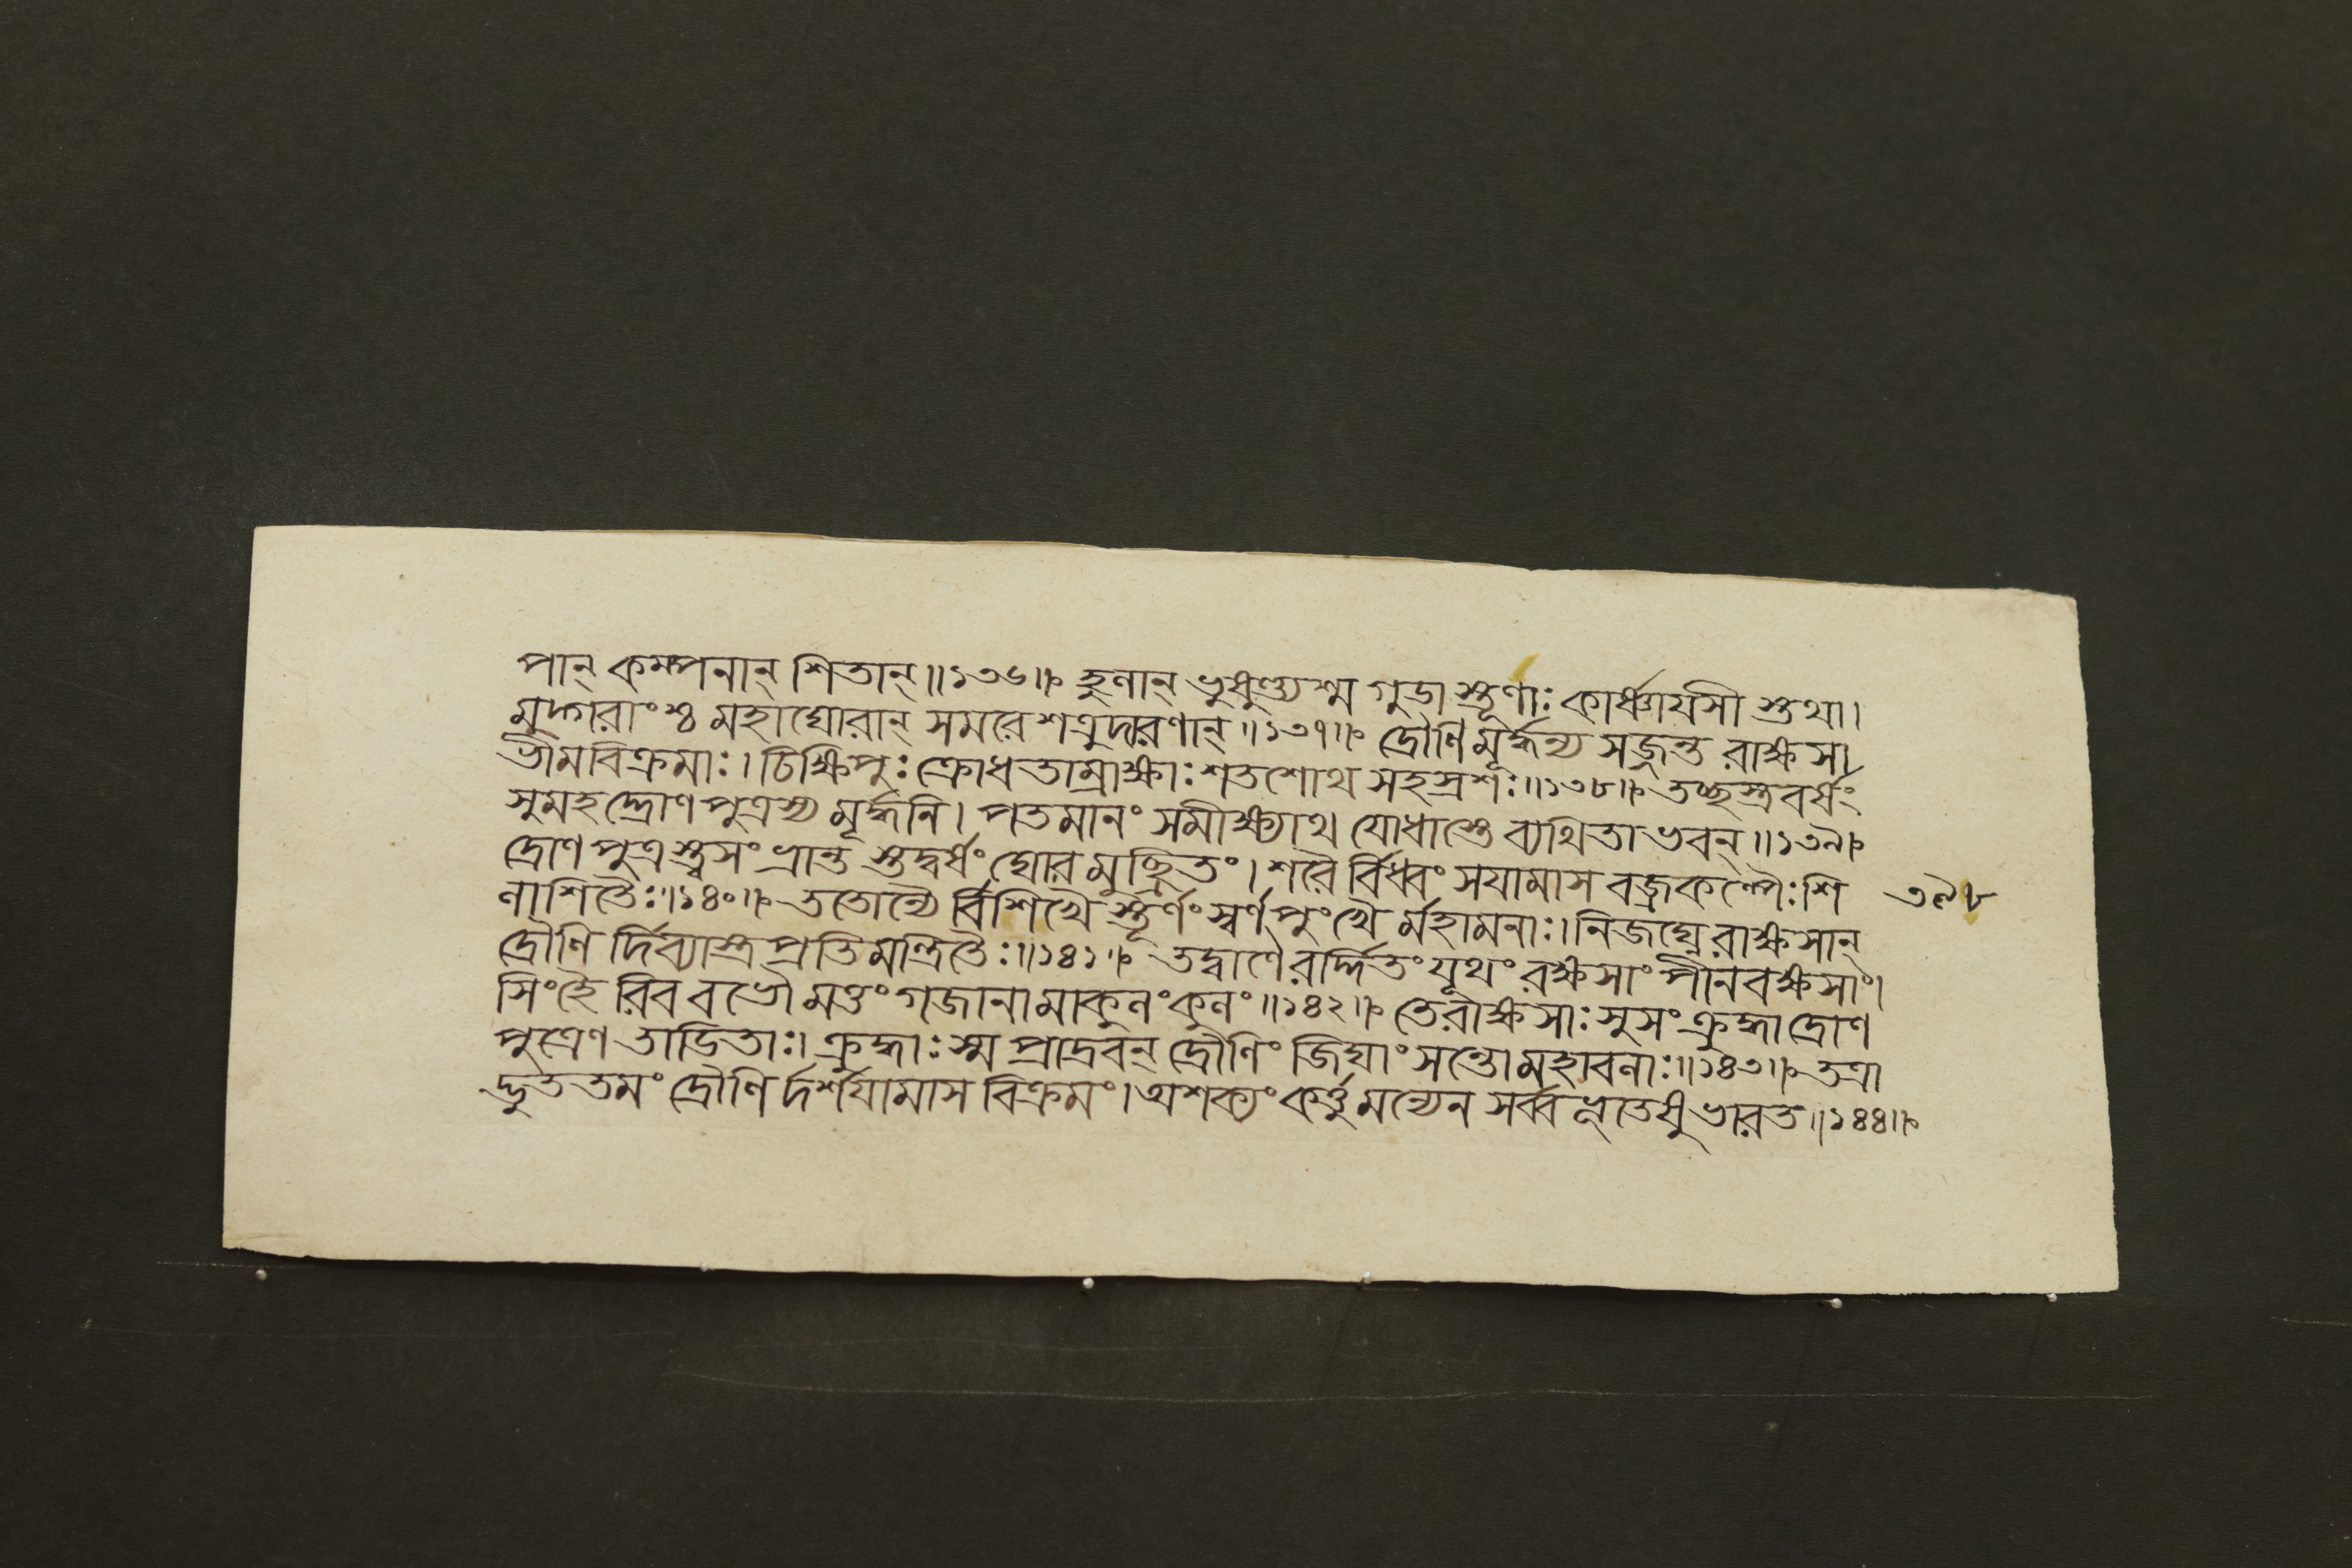 পান্ কম্পনান্ শিতান্॥১৩৬॥ হুণান্ ভুষুণ্ড্যশ্ম গুডা স্তূণাঃ কার্ষ্ণায়সী স্তথা।
মুদ্গরাংশ্চ মহাঘোরান্ সমরে শত্রুদারণান্॥১৩৭॥ দ্রৌণি মূর্দ্ধন্য সজ্জন্ত রাক্ষসা
ভীমবিক্রমাঃ। চিক্ষিপুঃ ক্রোধ তাম্রাক্ষাঃ শতশোথ সহস্রশঃ॥১৩৮॥ তচ্ছস্ত্রবর্ষং
সুমহদ্দ্রোণ পুত্রস্য মূর্দ্ধনি। পতমানং সমীক্ষ্যাথ যোধাস্তে ব্যথিতা ভবন্॥১৩৯
দ্রোণ পুত্র স্ত্বসং ভ্রান্ত স্তদ্বর্ষং ঘোর মুচ্ছ্রিতং। শরৈ র্বিধ্বং সয়ামাস বজ্রকল্পৈঃ শি
৩৯৮
লাশিতৈঃ॥১৪০॥ ততোন্যৈ র্বিশিখৈ স্তূর্ণং স্বর্ণ পুংখৈ র্মহামনাঃ। নিজঘ্নে রাক্ষসান্
দ্রৌণি র্দিব্যাস্ত্র প্রতি মন্ত্রিতৈঃ॥১৪১॥ তদ্বাণৈ রর্দ্দিতং যূথং রক্ষসাং পীনবক্ষসাং।
সিংহৈ রিব বভৌ মত্তং গজানা মাকুলং কুলং॥১৪২॥ তে রাক্ষসাঃ সুসং ক্রুদ্ধা দ্রোণ
পুত্রেণ তাডিতাঃ। ক্রুদ্ধাঃ স্ম প্রাদ্রবন্ দ্রৌণিং জিঘাং সন্তো মহাবলাঃ॥১৪৩॥ তত্রা
দ্ভুত তমং দ্রৌণি র্দর্শয়ামাস বিক্রমং। অশক্যং কর্ত্তু মন্যেন সর্ব্ব ভূতেষু ভারত॥১৪৪॥